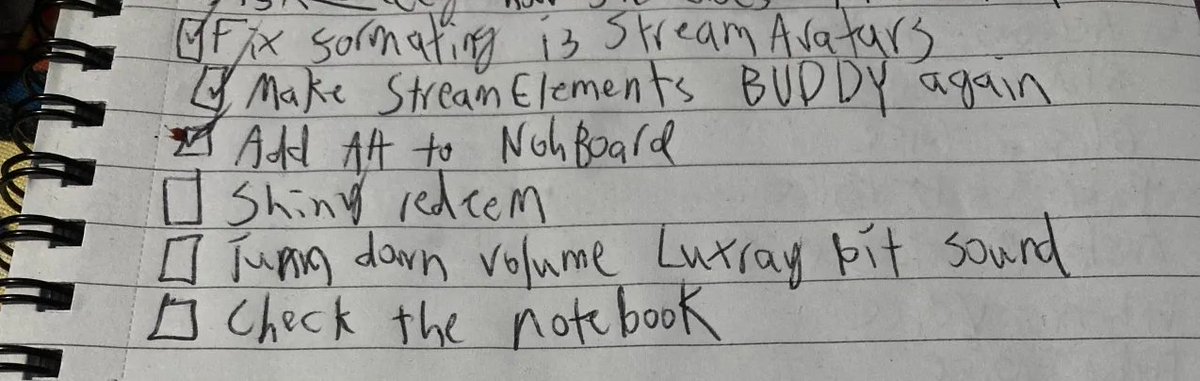 Fix sormating is Stream Avatars
Make StreamElements BUDDY again
Add Alt to NohBoard
Shiny redeem
Turn down volume Luxray bit sound
Check the notebook